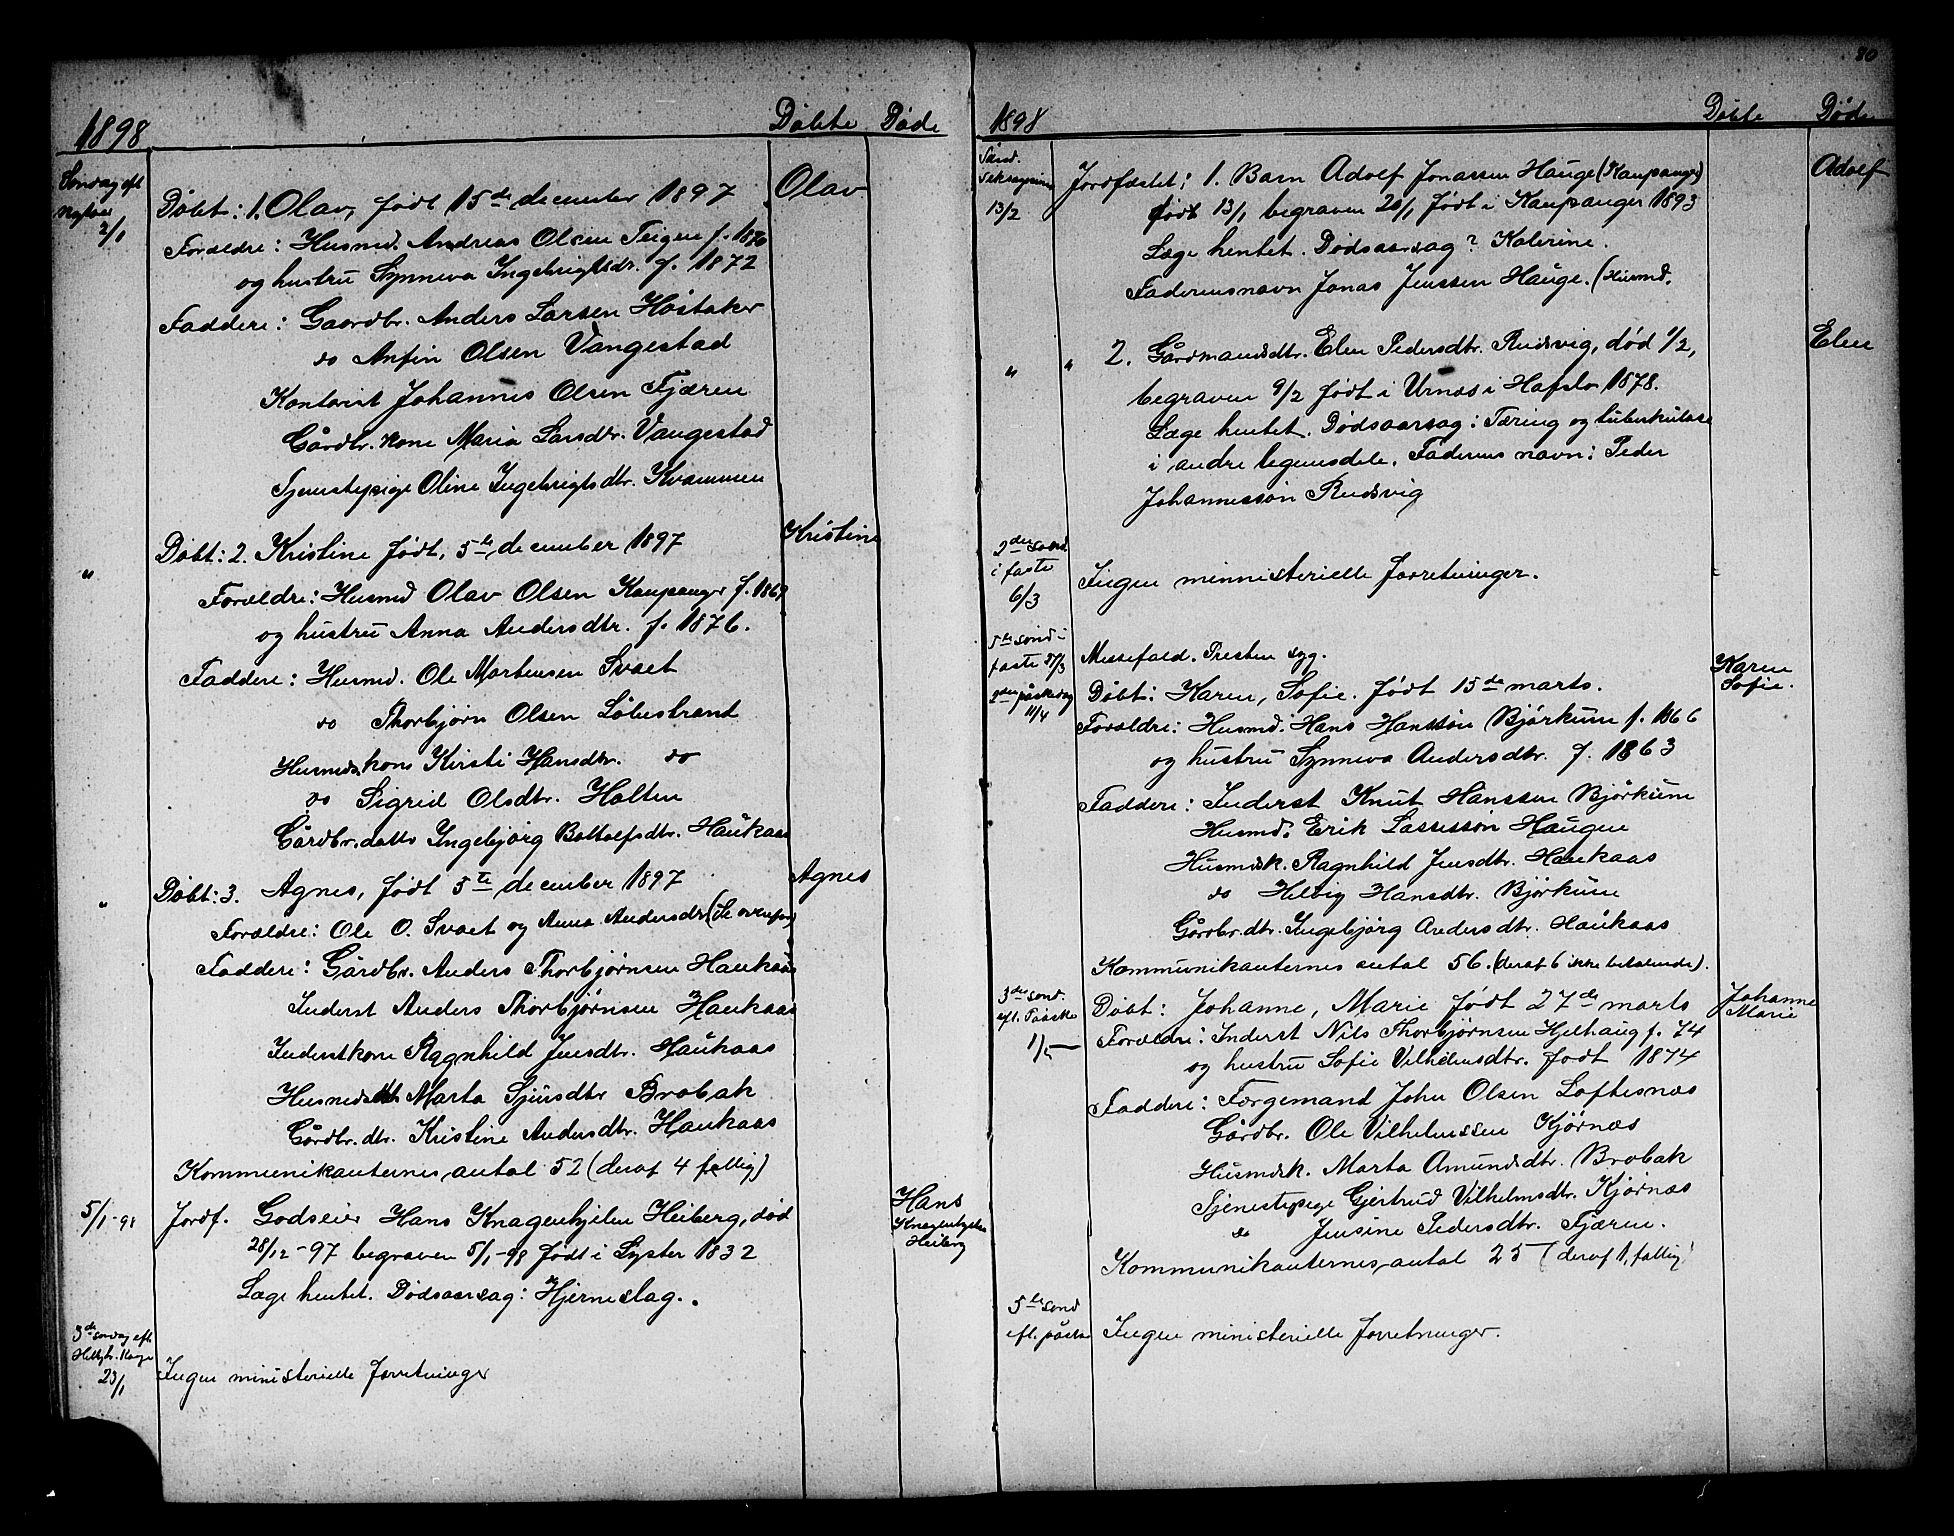 1898 Döbte Döde
Søndag eft.
Nytaar
2/1
Döbt: 1. Olav, född 15de december 1897 Olav
Forældre: Husmd. Andreas Olsen Teigen f. 1870
og hustru Synneva Ingebrigtsdr. f. 1872
Faddere: Gaardbr. Anders Larsen Høstaker
do Anfin Olsen Vangestad
Kontorist Johannes Olsen Fjæren
Gårdbr. kone Maria Larsdtr. Vangestad
Tjenestepige Oline Ingebrigtsdtr. Kvammen
" Döbt: 2. Kristine født, 5te december 1897 Kristine
Forældre: Husmd Olav Olsen Kaupanger f. 1869
og hustru Anna Andersdtr. f. 1876.
Faddere: Husmd. Ole Martensen Svaet
do Thorbjørn Olsen Löbestrand
Husmds.kone Kirsti Hansdtr. do
do Sigrid Olsdtr. Holten
Gårdbr.datter Ingebjørg Bottolfsdtr. Haukaas
" Döbt: 3. Agnes, født 5te december 1897 Agnes
Forældre: Ole O. Svaet og Anna Andersdtr (se ovenfor)
Faddere: Gårdbr. Anders Thorbjørnsen Haukaas
Inderst Anders Thorbjørnsen Haukaas
Inderstkone Ragnhild Jensdtr. Haukaas
Husmds Marta Sjursdtr Brobak
Gårdbr.dtr. Kristine Andersdtr. Haukaas
Kommunikanternes antal 52 (deraf 4 fattig)
5/1-98 Jordf. Godseier Hans Knagenhjelm Heiberg, död Hans
Knagenhjelm
Heiberg
28/12-97 begraven 5/1-98 født i Lyster 1832
Læge hentet. Dödsaarsag: Hjerneslag.
3de søndag eft.
Helligtr. Konge
23/1
Ingen ministerielle forretninger
80
1898 Döbte Döde
Sønd.
Seksagesima
13/2
Jordfæstet: 1. Barn Adolf Jonassen Hauge (Kaupanger) Adolf
född 13/1 begraven 20/1 født i Kaupanger 1893
Læge hentet. Dødsaarsag? Katerine.
Faderensnavn Jonas Jenssen Hauge. (Husmd.
" " 2. Gårdmandsdtr. Elen Pedersdtr. Rudsvig, död 1/2, Elen
begraven 9/2 født i Urnæs i Hafslo 1878.
Læge hentet. Dødsaarsag: Tæring og tuberkulose
i andre legemsdele. Faderens navn: Peder
Johannessøn Rudsvig
2den sønd
i faste
6/3
Ingen minnisterielle forretninger.
5te sønd i
faste 27/3
Messefald. Presten syg.
2den påskedag
11/4
Döbt: Karen, Sofie. født 15de marts. Karen
Sofie.
Forældre: Husmd. Hans Hanssön Bjørkum f. 1866
og hustru Synneva Andersdtr. f. 1863
Faddere: Inderst Knut Hanssen Bjørkum
Husmd. Erik Lassessön Haugen
Husmdsk. Ragnhild Jensdtr. Haukaas
do Helvig Hansdtr. Bjørkum
Gårdbr.dtr. Ingebjörg Andersdtr. Haukaas
Kommunikanternes antal 56. (deraf 6 ikke betalende).
3de sønd.
eft. Påske
1/5
Döbt: Johanne, Marie født 27de marts Johanne
Marie
Forældre: Inderst Nils Thorbjørnsen Hjelhaug f. 74
og hustru Sofie Vilhelmsdtr. født 1874
Faddere: Færgemand John Olsen Loftesnæs
Gårdbr. Ole Vilhelmssen Kjørnæs
Husmdsk. Marta Amundsdtr. Brobak
Tjenestepige Gjertrud Vilhelmsdtr. Kjörnæs
do Jensine Pedersdtr. Fjæren.
Kommunikanternes antal 25 (deraf 1, fattig)
5te sønd
eft. påske
Ingen ministerielle forretninger.